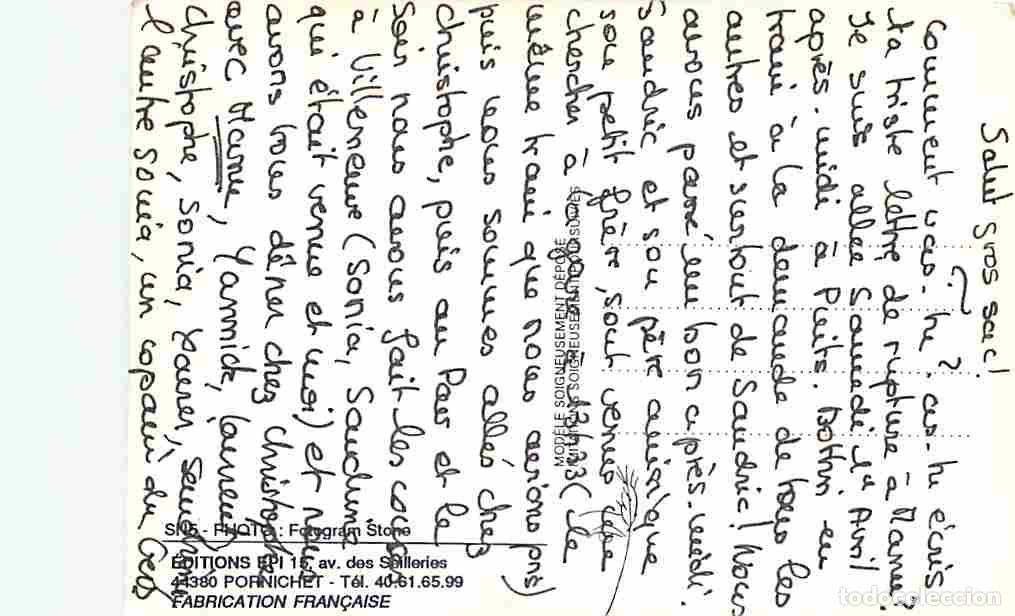 Salut gros sac!
Comment vas-tu? as-tu écris
ta triste lettre de rupture à Manu?
Je suis allée Samedi 1er Avril
après-midi à Puits. Bothn en
train à la demande de tous les
autres et surtout de Sandric! Nous
avons passé un bon après-midi.
Sandric et son père ainsi que
son petit frère, sont venus me
chercher à la gare à 13h33 (le
même train que nous avions pris)
puis nous sommes allés chez
Christophe, puis au Parc et le
soir nous avons fait les courses
à Villeneuve (Sonia, Sandrine
qui était venue et moi) et nous
avons tous dîner chez Christophe
avec Manu, Yannick, Laurent
Christophe, Sonia, Xavier, Sandrine
l'autre Sonia, un copain du Gers
MODÈLE SOIGNEUSEMENT DÉPOSÉ
IMITATIONS SOIGNEUSEMENT POURSUIVIES
SN5 - PHOTO : Fotogram Stone
ÉDITIONS EPI 15, av. des Saulleries
44380 PORNICHET - Tél. 40.61.65.99
FABRICATION FRANÇAISE
todocoleccion